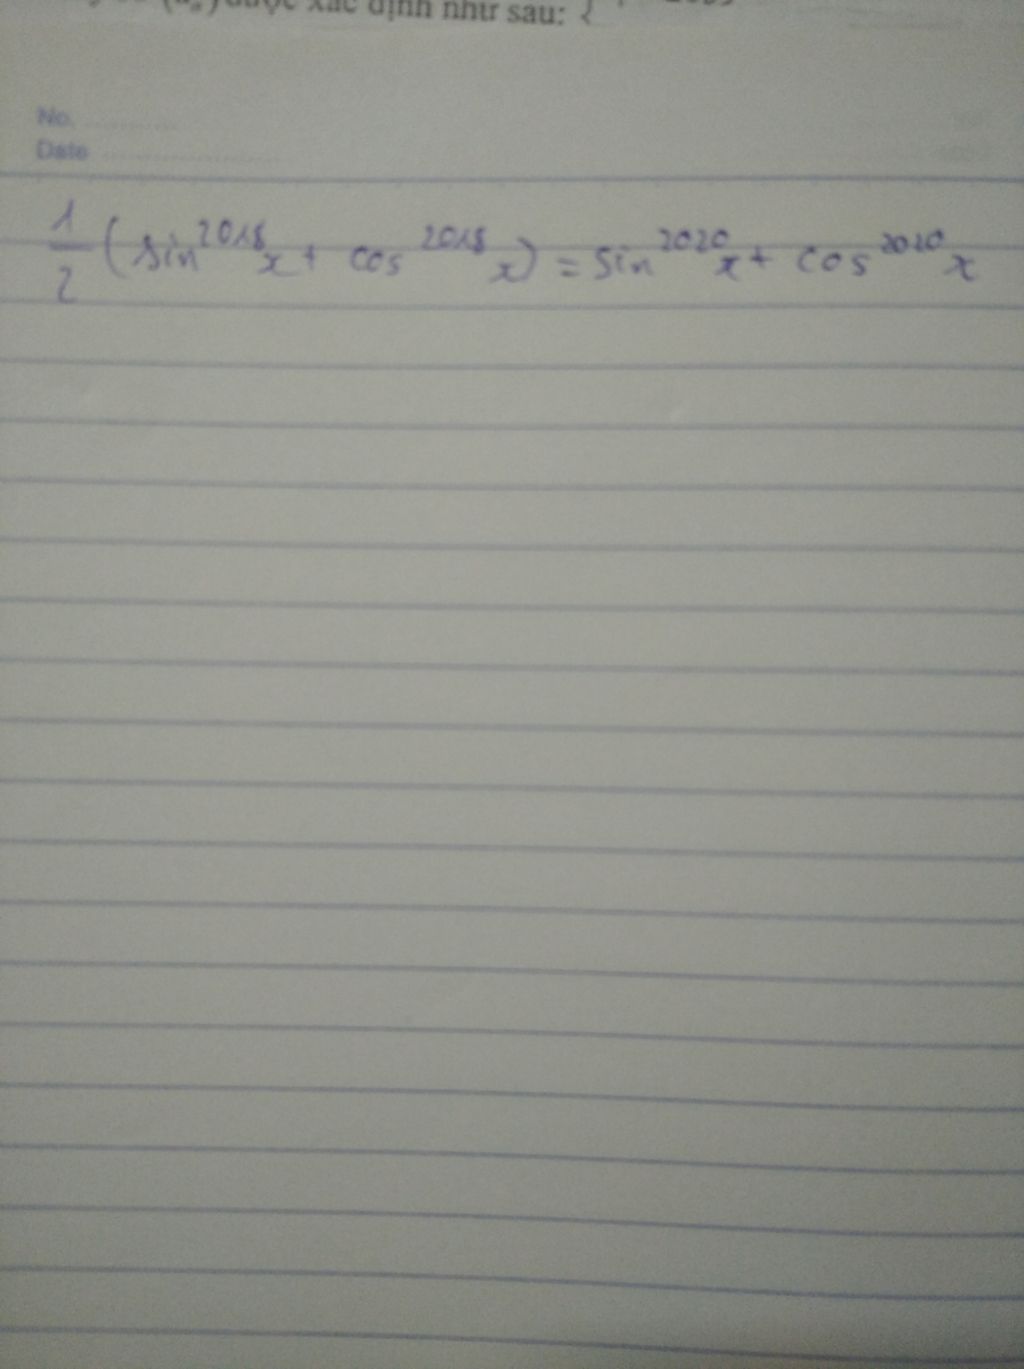 được xác định như sau: {
No.
Date
1/2 (sin^2018 x + cos^2018 x) = sin^2020 x + cos^2020 x